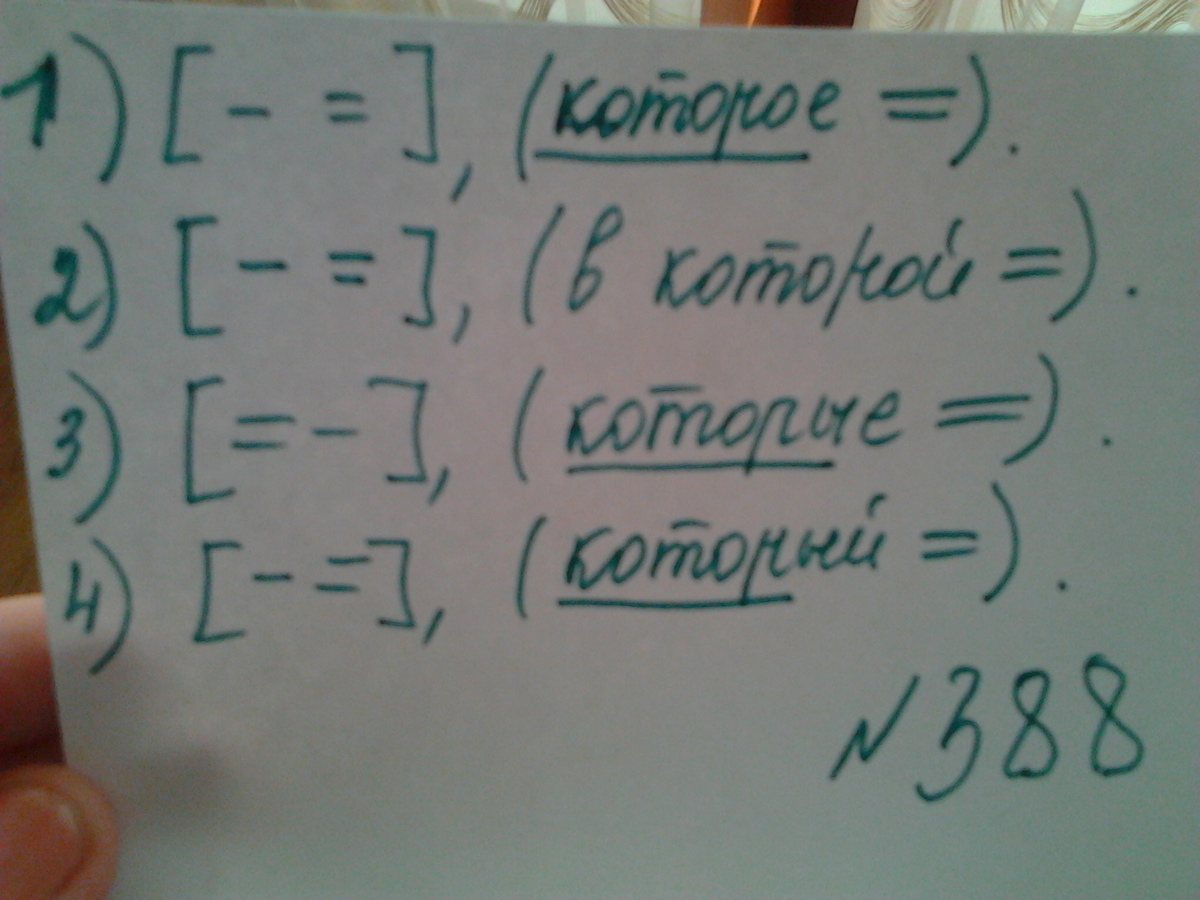 1) [ - = ], (которое =).
2) [ - = ], (в которой =).
3) [ = - ], (которые =).
4) [ - = ], (который =).
№388